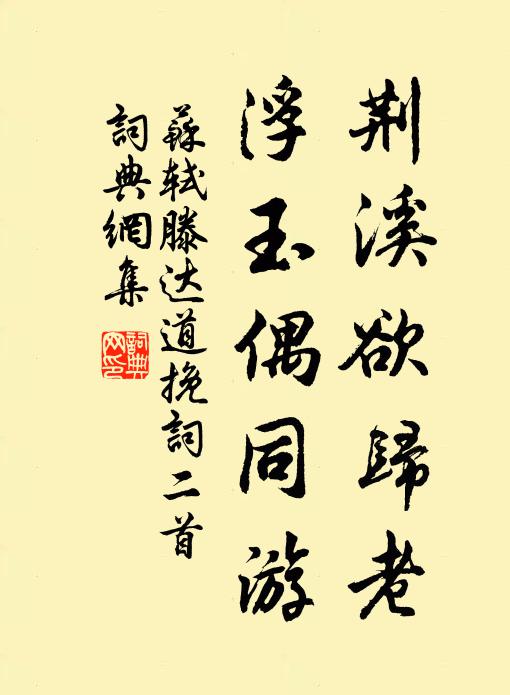 荆溪欲歸老
浮玉偶同游
蘇轼滕达道挽詞二首
詞典網集
詞典网印